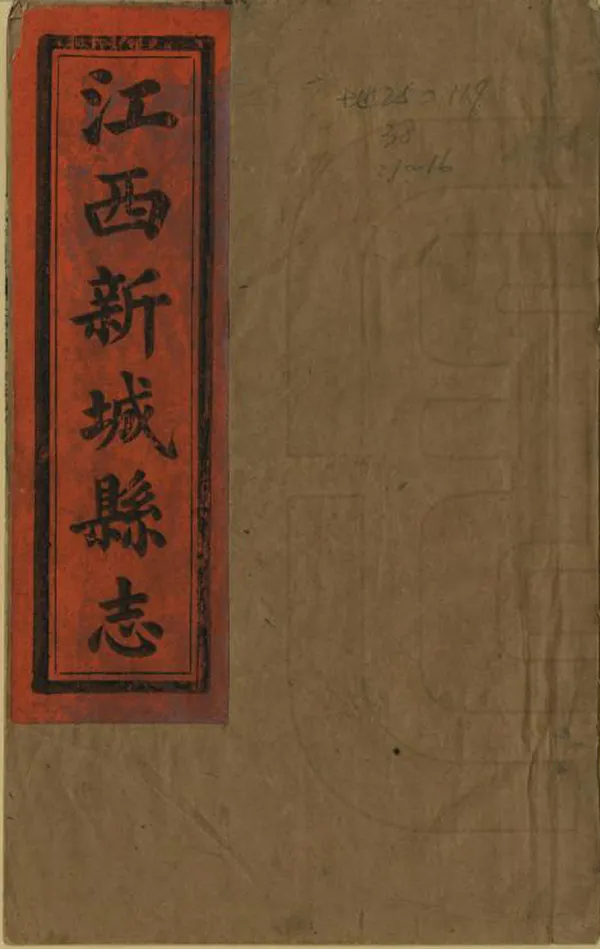 江西新城縣志
地25 119
38
:1~16